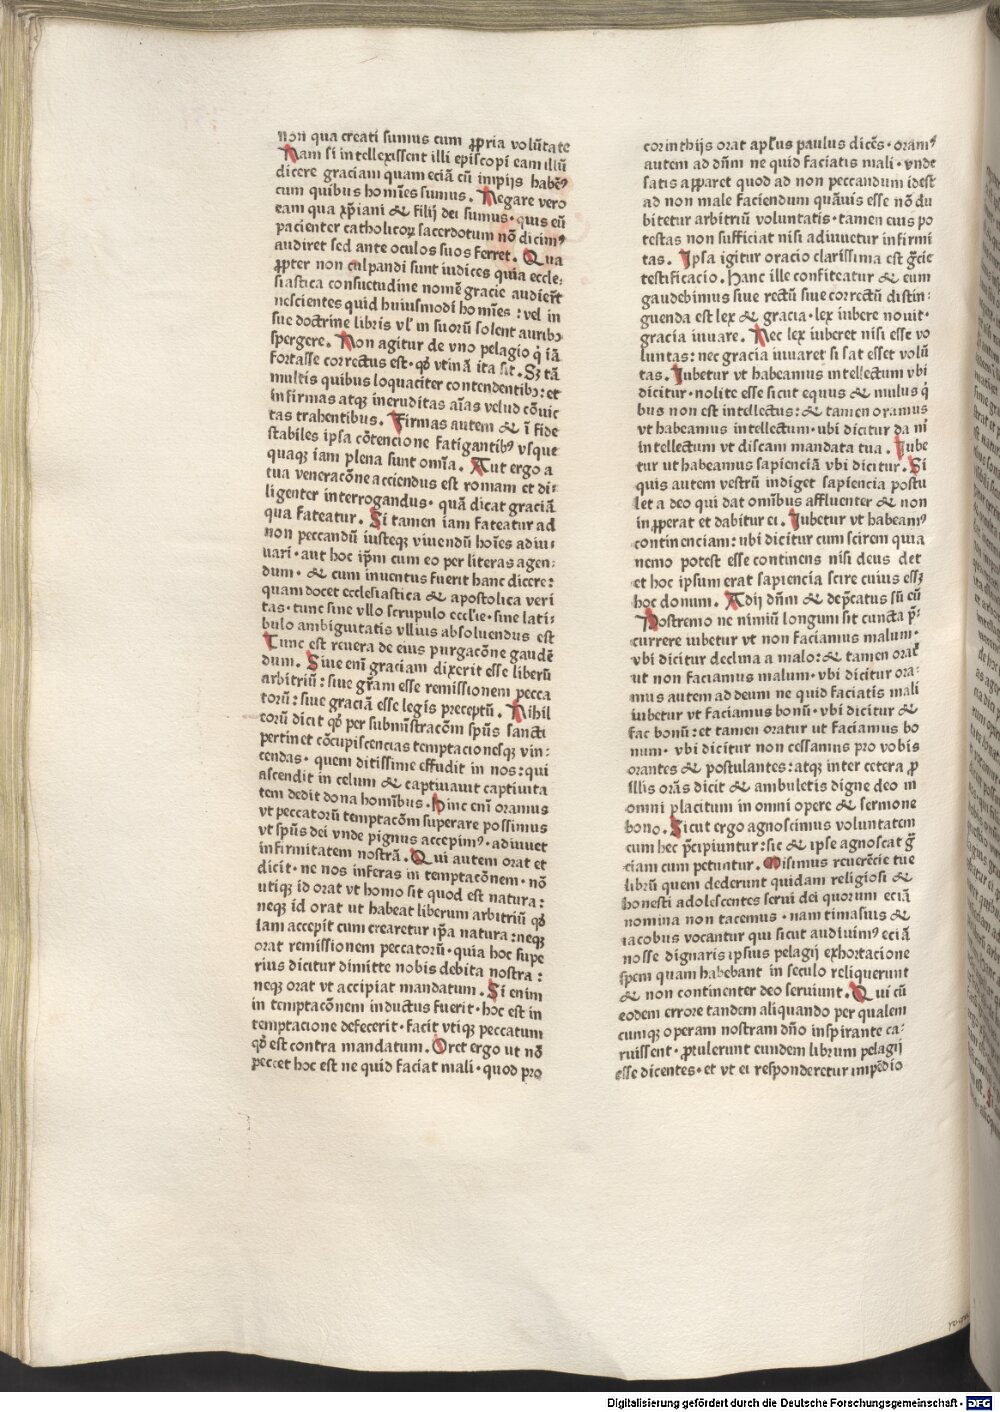 non qua creati sumus cum ꝓpria volūtate
Nam si intellexissent illi episcopi eam illū
dicere graciam quam eciā cū impijs habēꝰ
cum quibus homīes sumus. Negare vero
eam qua xp̄iani & filij dei sumus· quis eū
pacienter catholicoꝝ sacerdotum nō dicimꝰ
audiret sed ante oculos suos ferret. Qua
ꝓpter non culpandi sunt iudices quia eccle:
siastica consuetudine nomē gracie audierūt
nescientes quid huiusmodi homīes : vel in
sue doctrine libris vl' in suorū solent auribꝫ
spergere. Non agitur de vno pelagio q̇ iā
fortasse correctus est· qd̕ vtinā ita sit. Sꝫ tā
multis quibus loquaciter contendentibꝫ: et
infirmas atqꝫ ineruditas aīas velud cōuic
tas trahentibus. Firmas autem & ī fide
stabiles ipsa cōtencione fatigantibꝰ vsque
quaqꝫ iam plena sunt omīa. Aut ergo a
tua veneracōne acciendus est romam et di:
ligenter interrogandus· quā dicat graciā
qua fateatur. Si tamen iam fateatur ad
non peccandū iusteqꝫ viuendū hoīes adiu:
uari· aut hoc ip̄m cum eo per literas agen:
dum· & cum inuentus fuerit hanc dicere:
quam docet ecclesiastica & apostolica veri
tas· tunc sine vllo scrupulo eccl'ie· sine lati:
bulo ambiguitatis vllius absoluendus est
Tunc est reuera de eius purgacōne gaudē
dum. Siue enī graciam dixerit esse liberū
arbitriū : siue gr̄am esse remissionem pecca
torū : siue graciā esse legis preceptū. Nihil
eorū dicit qd̕ per submīstracōm sp̄us sancti
pertinet cōcupiscencias temptacionesqꝫ vin:
cendas· quem ditissime effudit in nos: qui
ascendit in celum & captiuauit captiuita
tem dedit dona homībus· Hinc enī oramus
vt peccatorū temptacōm superare possimus
vt sp̄us dei vnde pignus accepimꝰ· adiuuet
infirmitatem nostrā. Qui autem orat et
dicit· ne nos inferas in temptacōnem· nō
utiqꝫ id orat vt homo sit quod est natura:
neqꝫ id orat ut habeat liberum arbitriū qd̕
iam accepit cum crearetur ip̄a natura : neqꝫ
orat remissionem peccatorū· quia hoc supe
rius dicitur dimitte nobis debita nostra :
neqꝫ orat vt accipiat mandatum. Si enim
in temptacōnem inductus fuerit· hoc est in
temptacione defecerit· facit vtiqꝫ peccatum
qd̕ est contra mandatum. Oret ergo ut nō
peccet hoc est ne quid faciat mali· quod pro
corinthijs orat apl'us paulus dicēs· oramꝰ
autem ad dn̄m ne quid faciatis mali· vnde
satis apparet quod ad non peccandum idest
ad non male faciendum quāuis esse nō du
bitetur arbitriū voluntatis· tamen eius po
testas non sufficiat nisi adiuuetur infirmi
tas. Ipsa igitur oracio clarissima est gr̄cie
testificacio. Hanc ille confiteatur & eum
gaudebimus siue rectū siue correctū distin:
guenda est lex & gracia· lex iubere nouit·
gracia iuuare. Nec lex iuberet nisi esse vo
luntas: nec gracia iuuaret si sat esset volū
tas. Iubetur vt habeamus intellectum vbi
dicitur· nolite esse sicut equus & mulus q̇
bus non est intellectus: & tamen oramus
vt habeamus intellectum· ubi dicitur da mͥ
intellectum vt discam mandata tua. Iube
tur ut habeamus sapienciā vbi dicitur. Si
quis autem vestrū indiget sapiencia postu
let a deo qui dat omībus affluenter & non
inꝓperat et dabitur ei. Iubetur vt habeamꝰ
continenciam: ubi dicitur cum scirem quia
nemo potest esse continens nisi deus det
et hoc ipsum erat sapiencia scire cuius essꝫ
hoc donum. Adij dn̄m & dep̄catus sū eū
Postremo ne nimiū longum sit cuncta p̄:
currere iubetur vt non faciamus malum·
vbi dicitur declina a malo: & tamen orat᷑
ut non faciamus malum· vbi dicitur ora:
mus autem ad deum ne quid faciatis mali
iubetur vt faciamus bonū· vbi dicitur &
fac bonū : et tamen oratur ut faciamus bo
num· vbi dicitur non cessamus pro vobis
orantes & postulantes: atqꝫ inter cetera ꝓ
illis orās dicit & ambuletis digne deo in
omni placitum in omni opere & sermone
bono. Sicut ergo agnoscimus voluntatem
cum hec p̄cipiuntur: sic & ipse agnoscat gr̄
ciam cum petuntur. Misimus reuerēcie tue
librū quem dederunt quidam religiosi &
honesti adolescentes serui dei quorum eciā
nomina non tacemus· nam timasius &
iacobus vocantur qui sicut audiuimꝰ eciā
nosse dignaris ipsius pelagij exhortacione
spem quam habebant in seculo reliquerunt
& non continenter deo seruiunt. Qui cū
eodem errore tandem aliquando per qualem
cumqꝫ operam nostram dn̄o inspirante ca:
ruissent· ꝓtulerunt eundem librum pelagij
esse dicentes· et vt ei responderetur impēdio
Digitalisierung gefördert durch die Deutsche Forschungsgemeinschaft - DFG